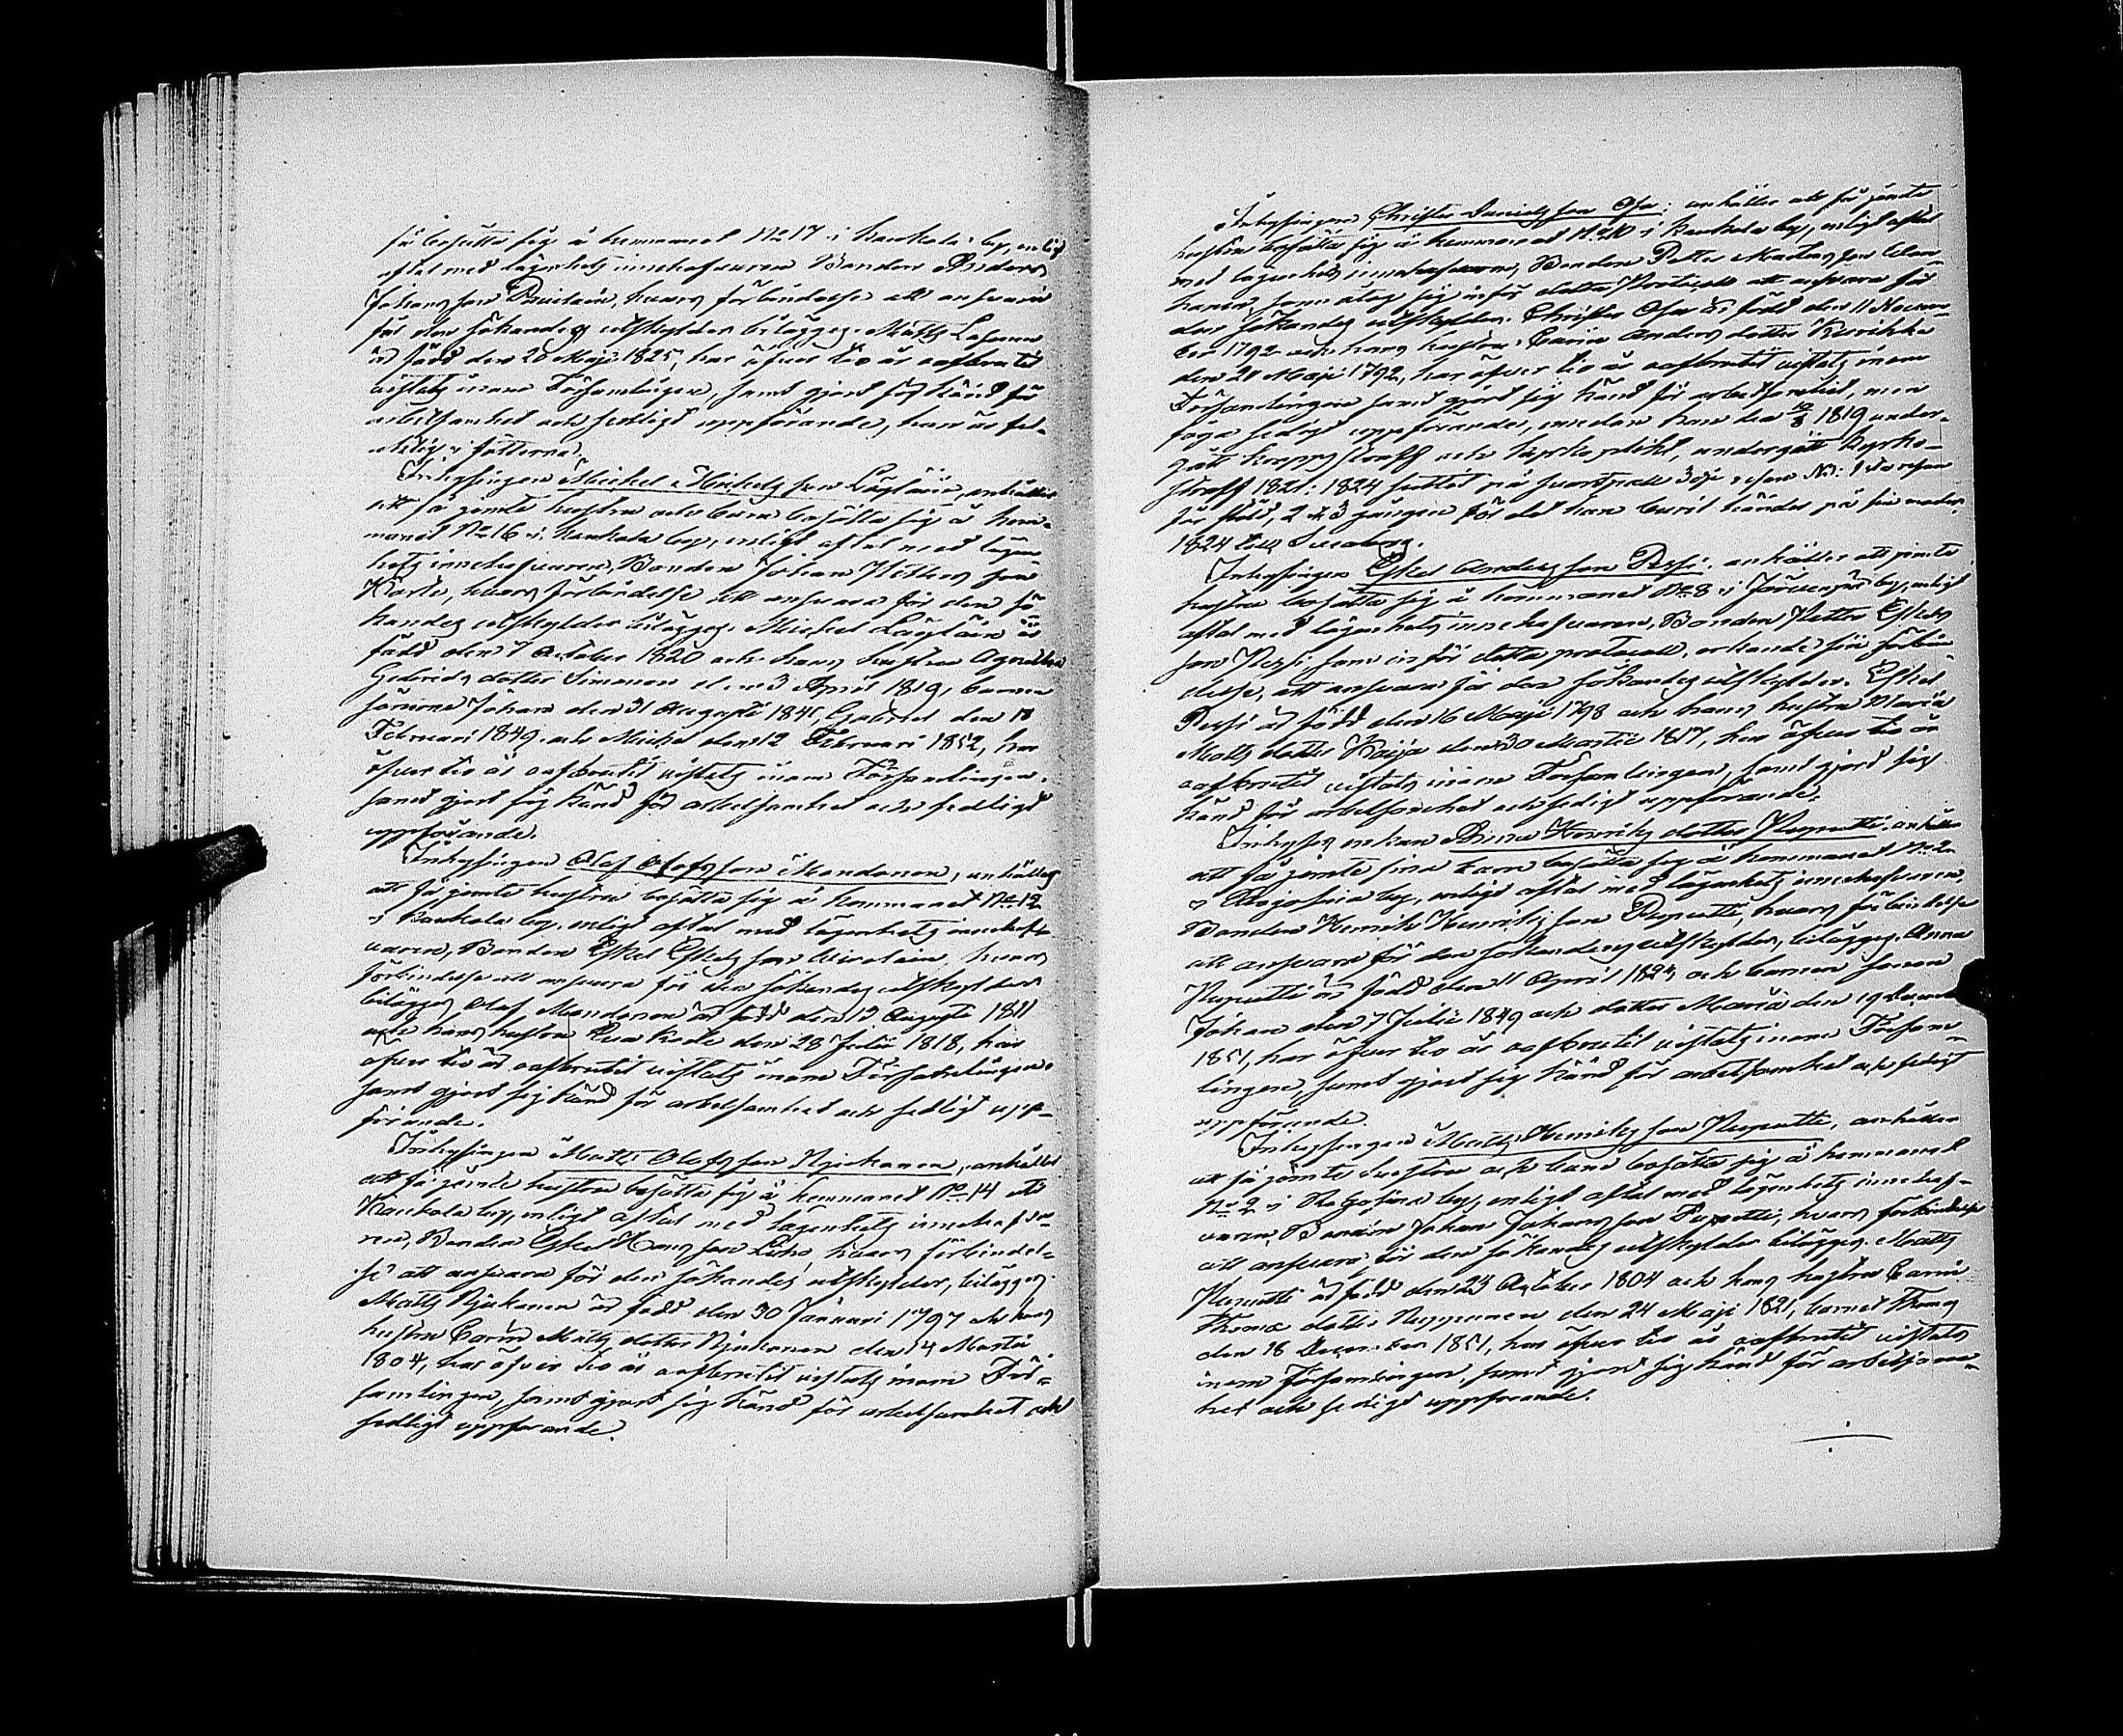 få bosätta sig å hemmanet No 17 i Kaukola by, enligt
aftal med lägenhets innehafvaren Bonden Anders
Johansson, hvars förbindelse att ansvara
för den sökandes utskylder bilägges. Matts
är född den 20 Maji 1825, har öfver tio år oafbrutit
vistats inom Församlingen, samt gjort sig känd för
arbetsamhet och sedligt uppförande, han är
i fötterna.
Inhysingen Michel Michelsson Lägläin, anhåller
att få jemte hustru och barn bosätta sig å hem-
manet No 16 i Kaukola by, enligt aftal med lägen-
hets innehafvaren, Bonden Johan Petterson
hvars förbindelse att ansvara för den sö-
kandes utskylder bilägges. Michel Lägläin är
född den 7 October 1820 och hans hustru Agneta
Gabriels dotter Simonen den 3 April 1819, barnen
sönerne Johan den 31 Augusti 1845, Gabriel den 18
Februari 1849 och Michel den 12 Februari 1852, har
öfver tio år oafbrutit vistats inom Församlingen,
samt gjort sig känd för arbetsamhet och sedligt
uppförande.
Inhysingen Olof Olofsson Mondonen, anhåller
att få jemte hustru bosätta sig å hemmanet No 12
i Kaukola by, enligt aftal med lägenhets innehaf-
varen, Bonden Eskel Eskelsson hvars
förbindelse att ansvara för den sökandes utskylder
bilägges. Olof Mondonen är född den 12 Augusti 1811
och hans hustru Eva den 28 Julii 1818, har
öfver tio år oafbrutit vistats inom Församlingen,
samt gjort sig känd för arbetsamhet och sedligt upp-
förande.
Inhysingen Matts Olofsson Nyökanen, anhåller
att få jemte hustru bosätta sig å hemmanet No 14 uti
Kaukola by, enligt aftal med lägenhets innehafva-
ren, Bonden Eskel Hansson hvars förbindel-
se att ansvara för den sökandes utskylder, bilägges.
Matts Nyökanen är född den 30 Januari 1797 och hans
hustru Carin Matts dotter Nyökanen den 14 Martii
1804, har öfver tio år oafbrutit vistats inom För-
samlingen, samt gjort sig känd för arbetsamhet och
sedligt uppförande.
Inhysingen Christer Danielsson Ofa: anhåller att få jemte
hustru bosätta sig å hemmanet No 10 i Kaukola by, enligt aftal
med lägenhets innehafvaren, Bonden Petter Madsson
som åtog sig inför detta Protocoll att ansvara för
den sökandes utskylder. Christer Ofa är född den 11 Novem-
ber 1792 och hans hustru Carin Anders dotter Kurikka
den 21 Maji 1792, har öfver tio år oafbrutit vistats inom
Församlingen samt gjort sig känd för arbetsamhet, men
föga sedigt uppförande, medan han den 1819 under-
gått kroppsstraff och kyrkoplikt, undergått kyrko-
straff 1821: 1824 suttit på
för stöld, 2 & 3 gången för det han burit händer på sin moder.
1824 till Sveaborg.
Inhysingen Eskel Andersson Pessi: anhåller att jemte
hustru bosätta sig å hemmanet No 8 i Järvenpää by, enligt
aftal med lägenhets innehafvaren, Bonden Petter Eskels
son Pessi, som inför detta protocoll, erkände sin förbin-
delse, att ansvara för den sökandes utskylder. Eskel
Pessi är född den 16 Maji 1798 och hans hustru Maria
Matts dotter Raija den 30 Martii 1817, har öfver tio år
oafbrutit vistats inom Församlingen, samt gjort sig
känd för arbetsamhet och sedigt uppförande.
Inhyses enkan Anna Henriks dotter Puputti, anhåller
att få jemte sina barn bosätta sig å hemmanet No 2
i Rogosina by, enligt aftal med lägenhets innehafvaren,
Bonden Henrik Henriksson Puputti, hvars förbindelse
att ansvara för den sökandes utskylder, bilägges. Anna
Puputti är född den 11 April 1824 och barnen sonen
Johan den 7 Julii 1849 och dotter Maria den 19
1851, har öfver tio år oafbrutit vistats inom Försam-
lingen, samt gjort sig känd för arbetsamhet och sedigt
uppförande.
Inhysingen Matts Henriksson Puputti, anhåller
att få jemte hustru och barn bosätta sig å hemmanet
No 2 i Rogosina by, enligt aftal med lägenhets innehaf-
varen Bonden Johan Johansson Puputti, hvars förbindelse
att ansvara för den sökandes utskylder bilägges. Matts
Puputti är född den 23 October 1804 och hans hustru Carin
Thomæ dotter Nuppunen den 24 Maji 1821, barnet Thomas
den 18 December 1851, har öfver tio år oafbrutit vistats
inom Församlingen, samt gjort sig känd för arbetsam-
het och sedigt uppförande.